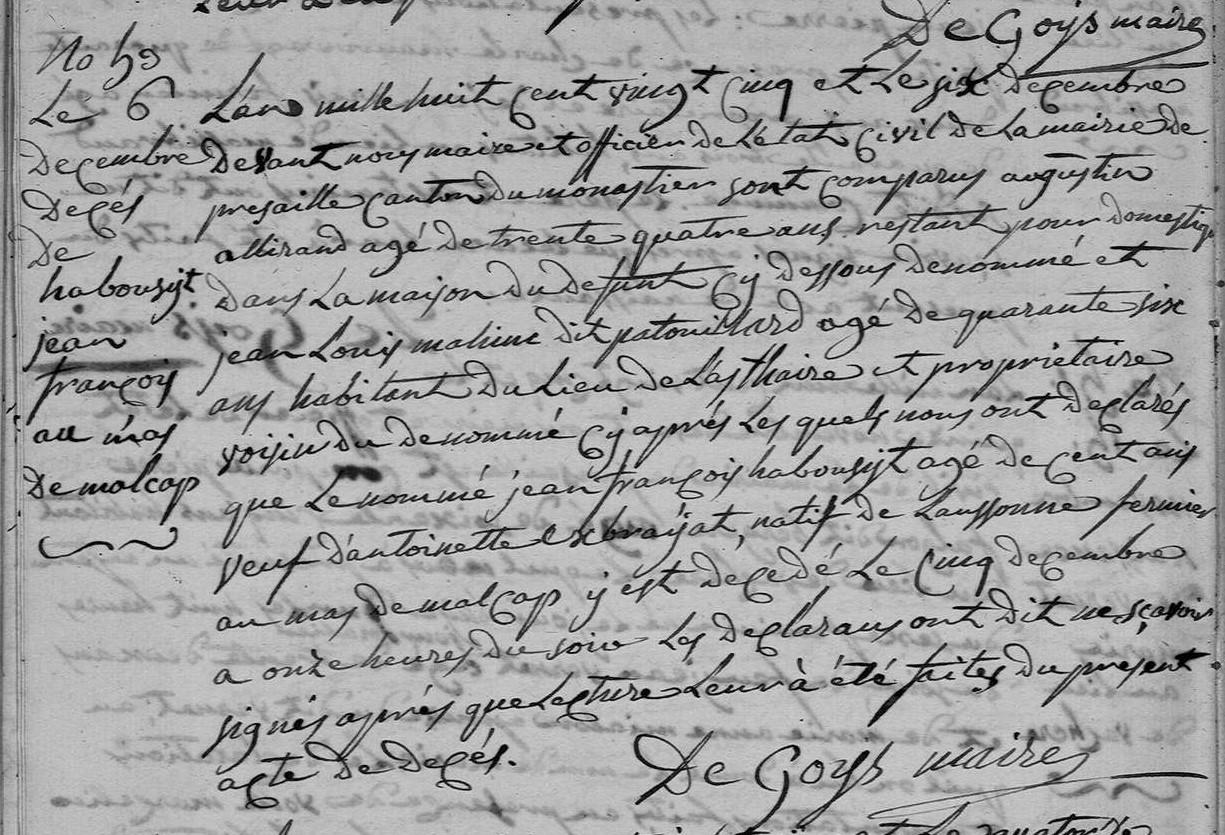 De Goys maire
No 
Le 6
Decembre
Decés
De
habousyt
jean
françois
au mas
De malcap
L'an mille huit cent vingt cinq et Le six Decembre
Devant nous maire et officier de L'état civil de La mairie de
presaille canton du monastier sont comparus augustin
allirand agé de trente quatre ans restant pour domestiq
dans La maison du defunt cy dessous denommé et
jean Louis mahinc dit patouillard agé de quarante six
ans habitant du Lieu de Lasthaire et propriétaire
voisin du denommé cy aprés Les quels nous ont declarés
que Le nommé jean françois habousyt agé de cent ans
veuf d'antoinette exbrayat, natif de Laussonne fermier
au mas de malcap y est decedé Le cinq decembre
a onze heures du soir Les declarans ont dit ne sçavoir
signés aprés que Lecture Leur à été faites du present
acte de decés.
De Goys maire